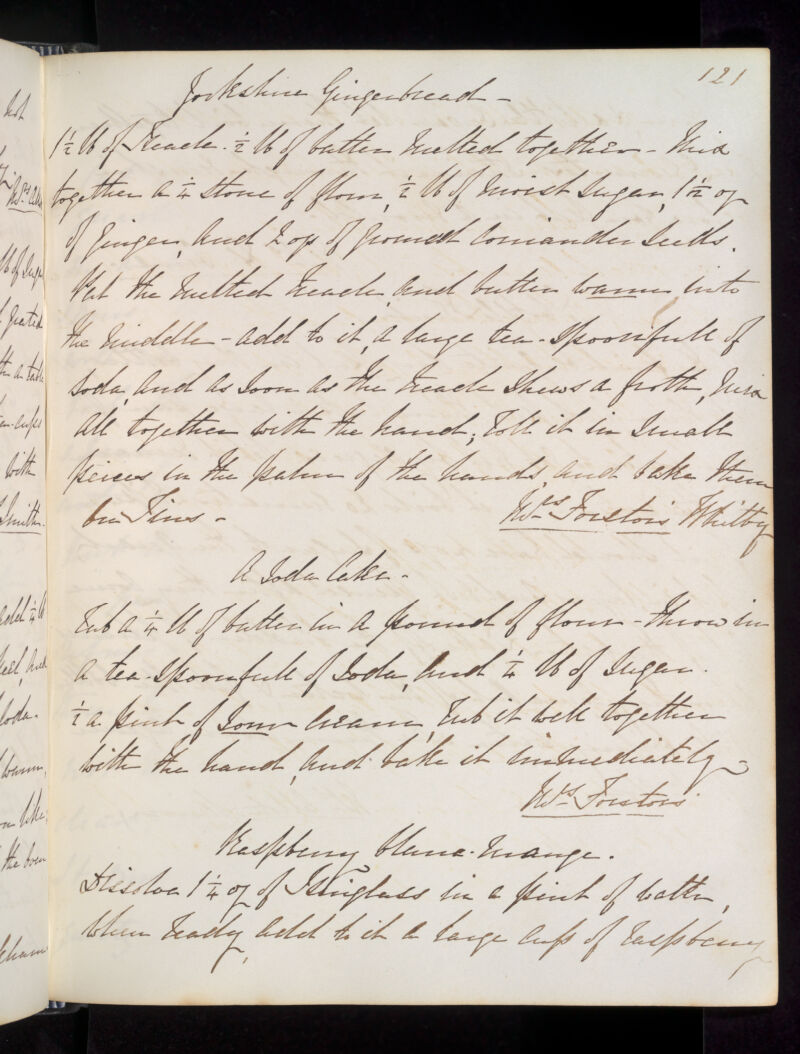 121
Yorkshire Gingerbread -
1½ lb of Treacle. ½ lb of butter melted together - Mix
together a ¼ stone of flour, ½ lb of moist sugar, 1½ oz
of ginger, and 2 oz of ground coriander seeds.
Put the melted treacle, and butter warm into
the middle - add to it, a large tea-spoonfull of
soda, and as soon as the treacle shews a froth, mix
all together with the hand; roll it in small
peices in the palm of the hands, and bake them
on Tins -
Mrs Forstors Whitby
A Soda Cake -
Rub a ¼ lb of butter in a pound of flour - throw in
a tea-spoonfull of Soda, and ¼ lb of Sugar.
½ a pint of sour cream, rub it well together
with the hand, and bake it immediately -
Mrs Forstors
Raspberry blanc-mange.
Dissolve 1¼ oz of Isinglass in a pint of water,
when ready, add to it a large cup of raspberry
not
lb of Suga
grated
with
Smith.
add ¼ lb
peel, and
soda.
warm,
the oven